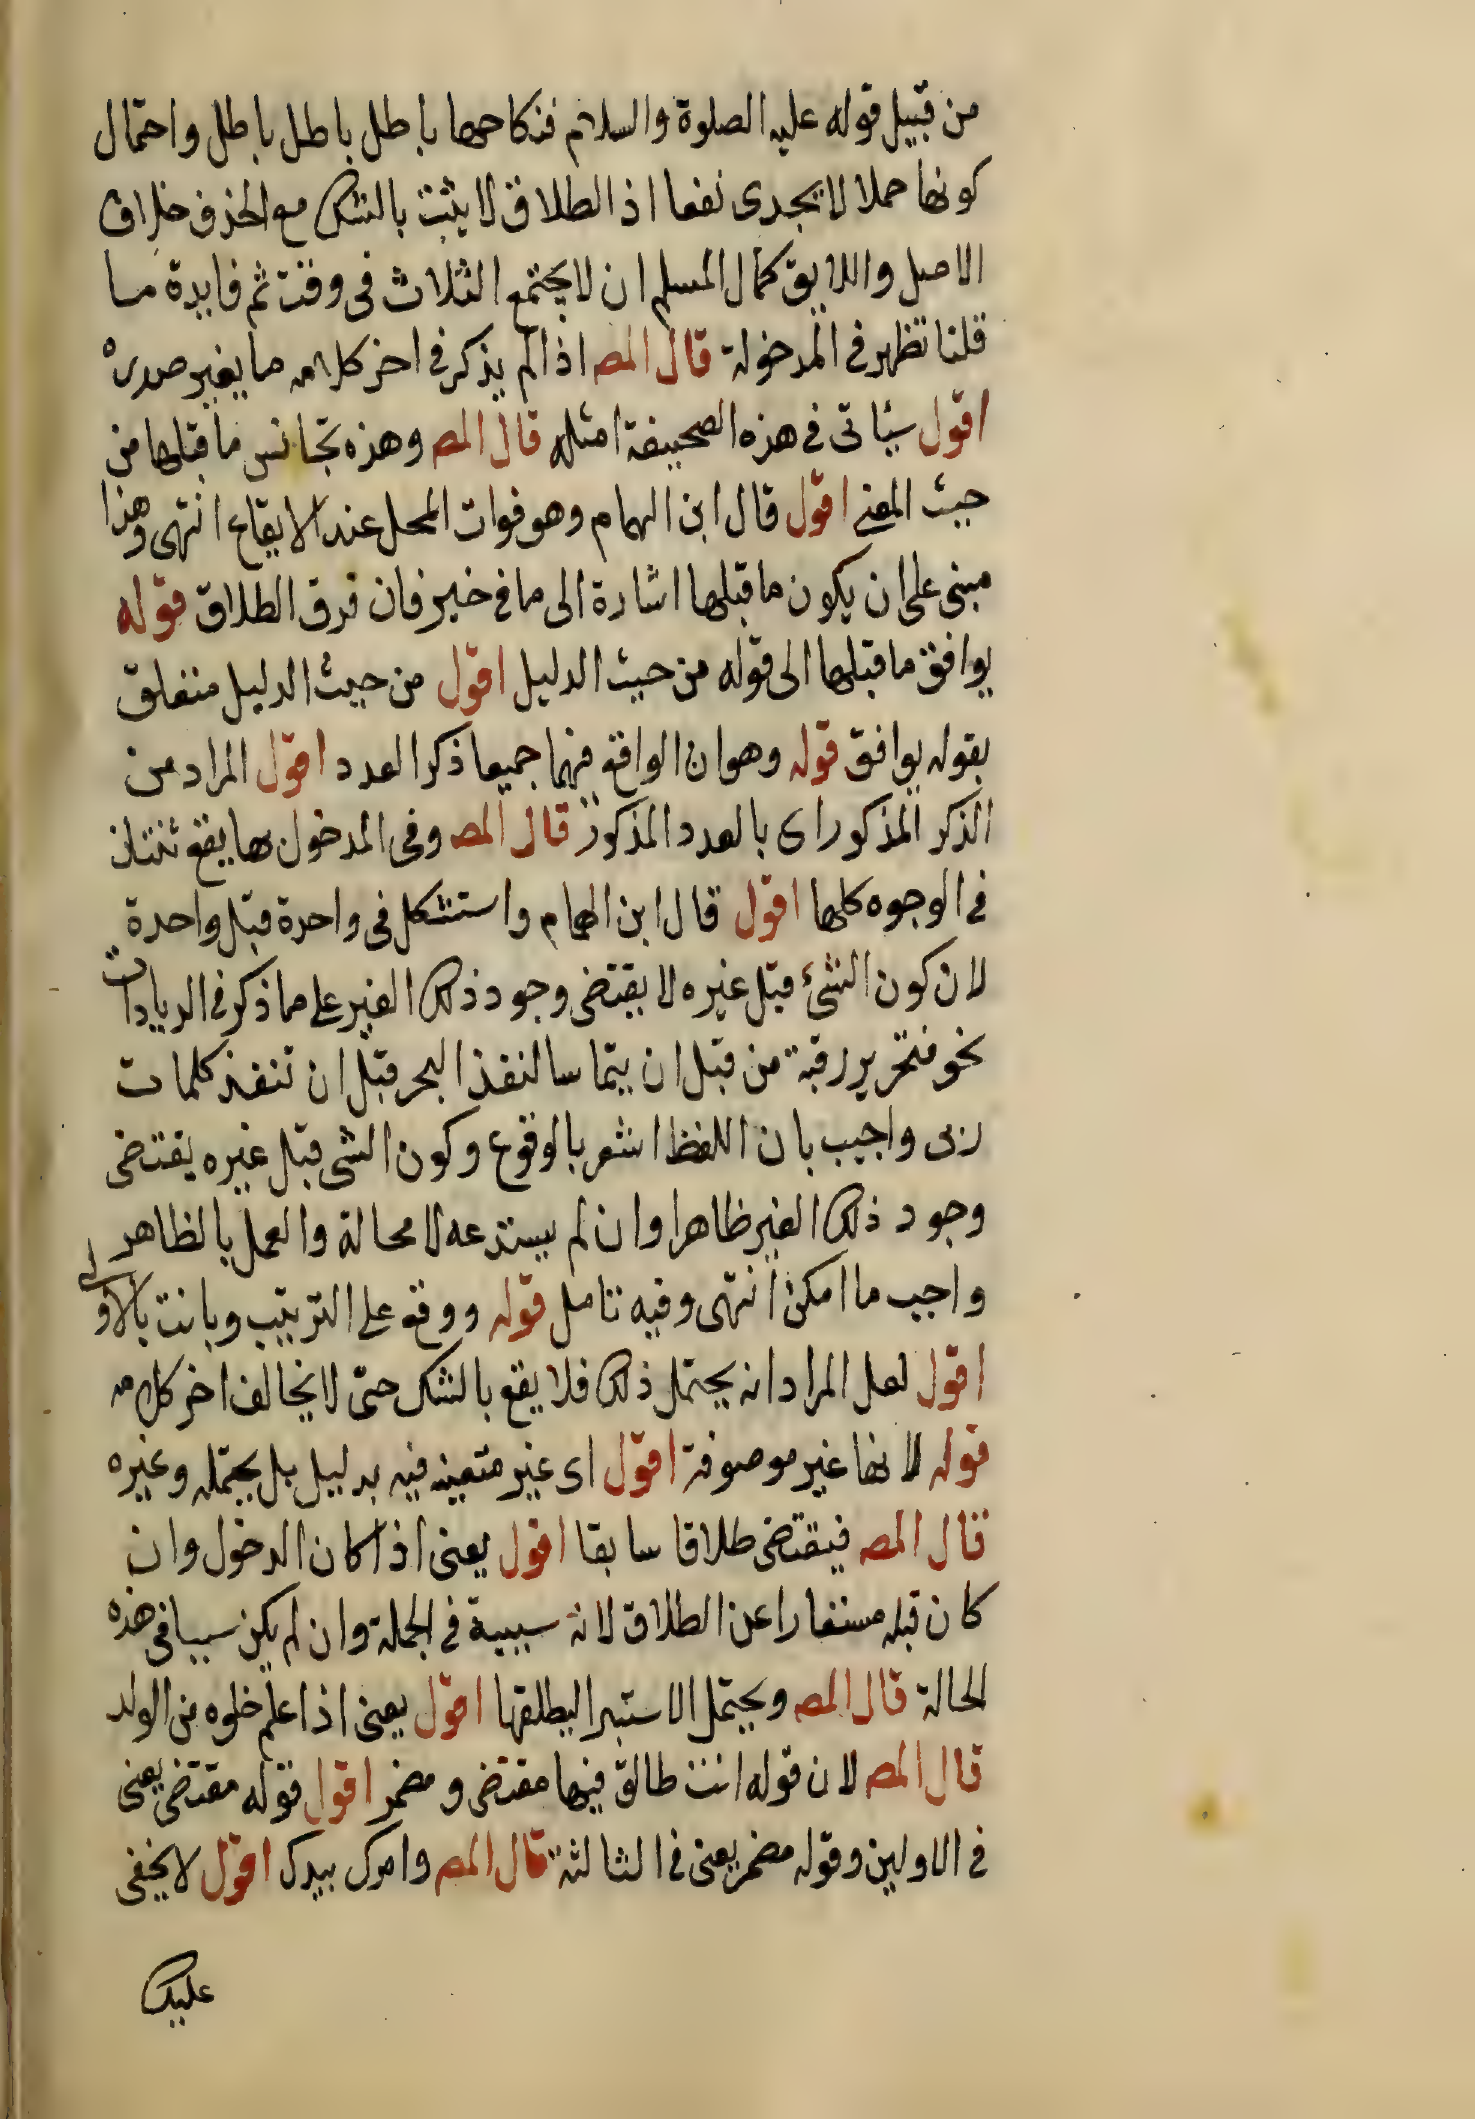 من قبيل قوله عليه الصلوة والسلام فنكاحها باطل باطل باطل واحتمال
كونها جملا لا يجدى نفعا اذ الطلاق لا يثبت بالشك مع الحذف خلاف
الاصل واللايق كمال المسلم ان لا يجتمع الثلاث فى وقت ثم فايدة ما
قلنا تظهر فى المدخولة قال المص اذا لم يذكر فى اخر كلامه ما يغير صدره
اقول سيأتى فى هذه الصحيفة امثله قال المص وهذه تجانس ما قبلها من
حيث المعنى اقول قال ابن الهمام وهو فوات المحل عند الايقاع انتهى وهذا
مبنى على ان يكون ما قبلها اشارة الى ما فى خير فان فرق الطلاق قوله
يوافق ما قبلها الى قوله من حيث الدليل اقول من حيث الدليل متعلق
بقوله يوافق قوله وهو ان الواقع فيهما جميعا ذكر العدد اقول المراد من
الذكر المذكور اى بالعدد المذكور قال المص وفى المدخول بها يقع ثنتان
فى الوجوه كلها اقول قال ابن الهمام واستشكل فى واحدة قبل واحدة
لان كون الشئ قبل غيره لا يقتضى وجود ذلك الغير على ما ذكر فى الزيادات
نحو فتحرير رقبة من قبل ان يتماسا لنفد البحر قبل ان تنفد كلمات
ربى واجيب بان اللفظ اشعر بالوقوع وكون الشى قبل غيره يقتضى
وجود ذلك الغير ظاهرا وان لم يستدعه لا محالة والعمل بالظاهر
واجب ما امكن انتهى وفيه تامل قوله ووقع على الترتيب وبانت بالاولى
اقول لعل المراد انه يحتمل ذلك فلا يقع بالشك حتى لا يخالف اخر كلامه
قوله لانها غير موصوفة اقول اى غير متعينه فيه بدليل بل يحتمله وغيره
قال المص فيقتضى طلاقا سابقا اقول يعنى اذا كان الدخول وان
كان قبله مستعارا عن الطلاق لانه سببية فى الجملة وان لم يكن سببا فى هذه
الحالة قال المص ويحتمل الاستبرا ليطلقها اقول يعنى اذا علم خلوه من الولد
قال المص لان قوله انت طالق فيها مقتضى ومضمر اقول قوله مقتضى يعنى
فى الاولين وقوله مضمر يعنى فى الثالثة قال المص وامرك بيدك اقول لا يخفى
عليك